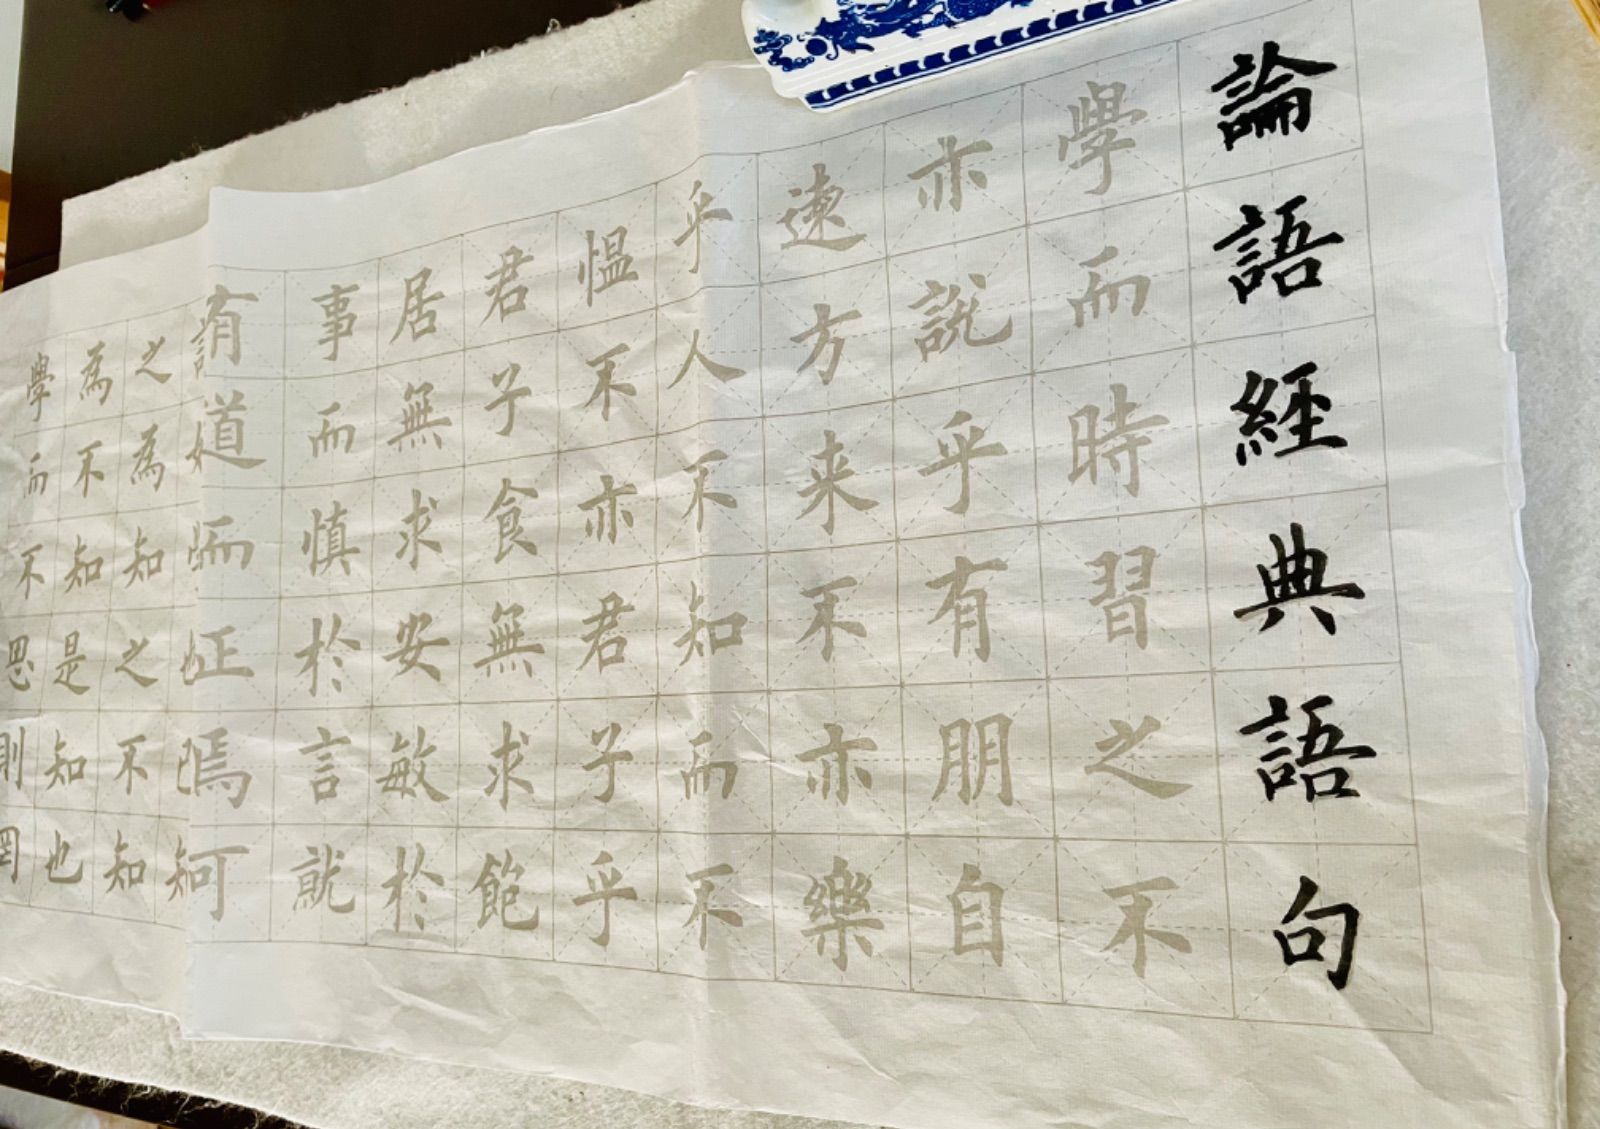 論語經典語句
學而時習之不
亦說乎有朋自
遠方来不亦樂
乎人不知而不
愠不亦君子乎
君子食無求飽
居無求安敏於
事而慎於言就
有道而正焉可
知
之為知之不知
為不知是知也
學而不思則罔